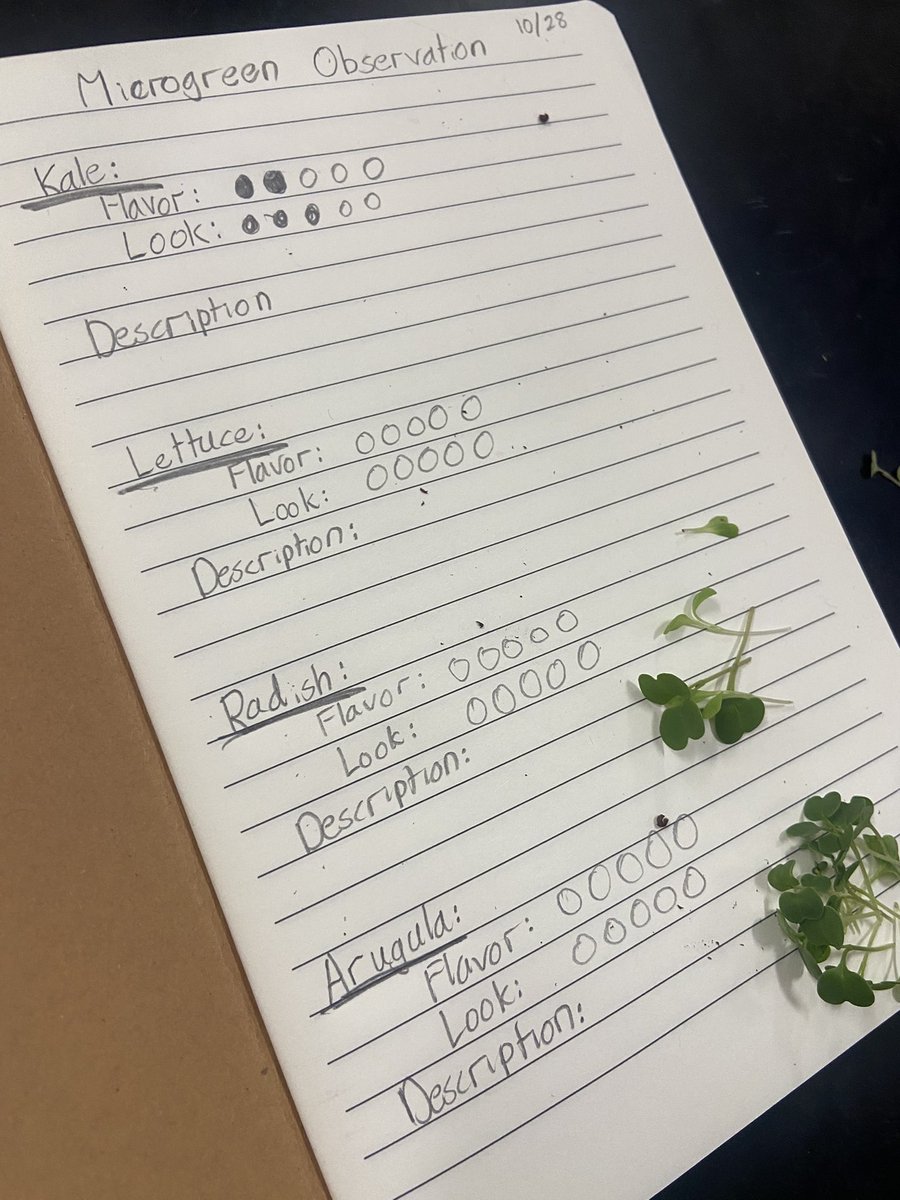 10/28
Microgreen Observation
Kale:
Flavor:
Look:
Description
Lettuce:
Flavor:
Look:
Description:
Radish:
Flavor:
Look:
Description:
Arugula:
Flavor:
Look:
Description: